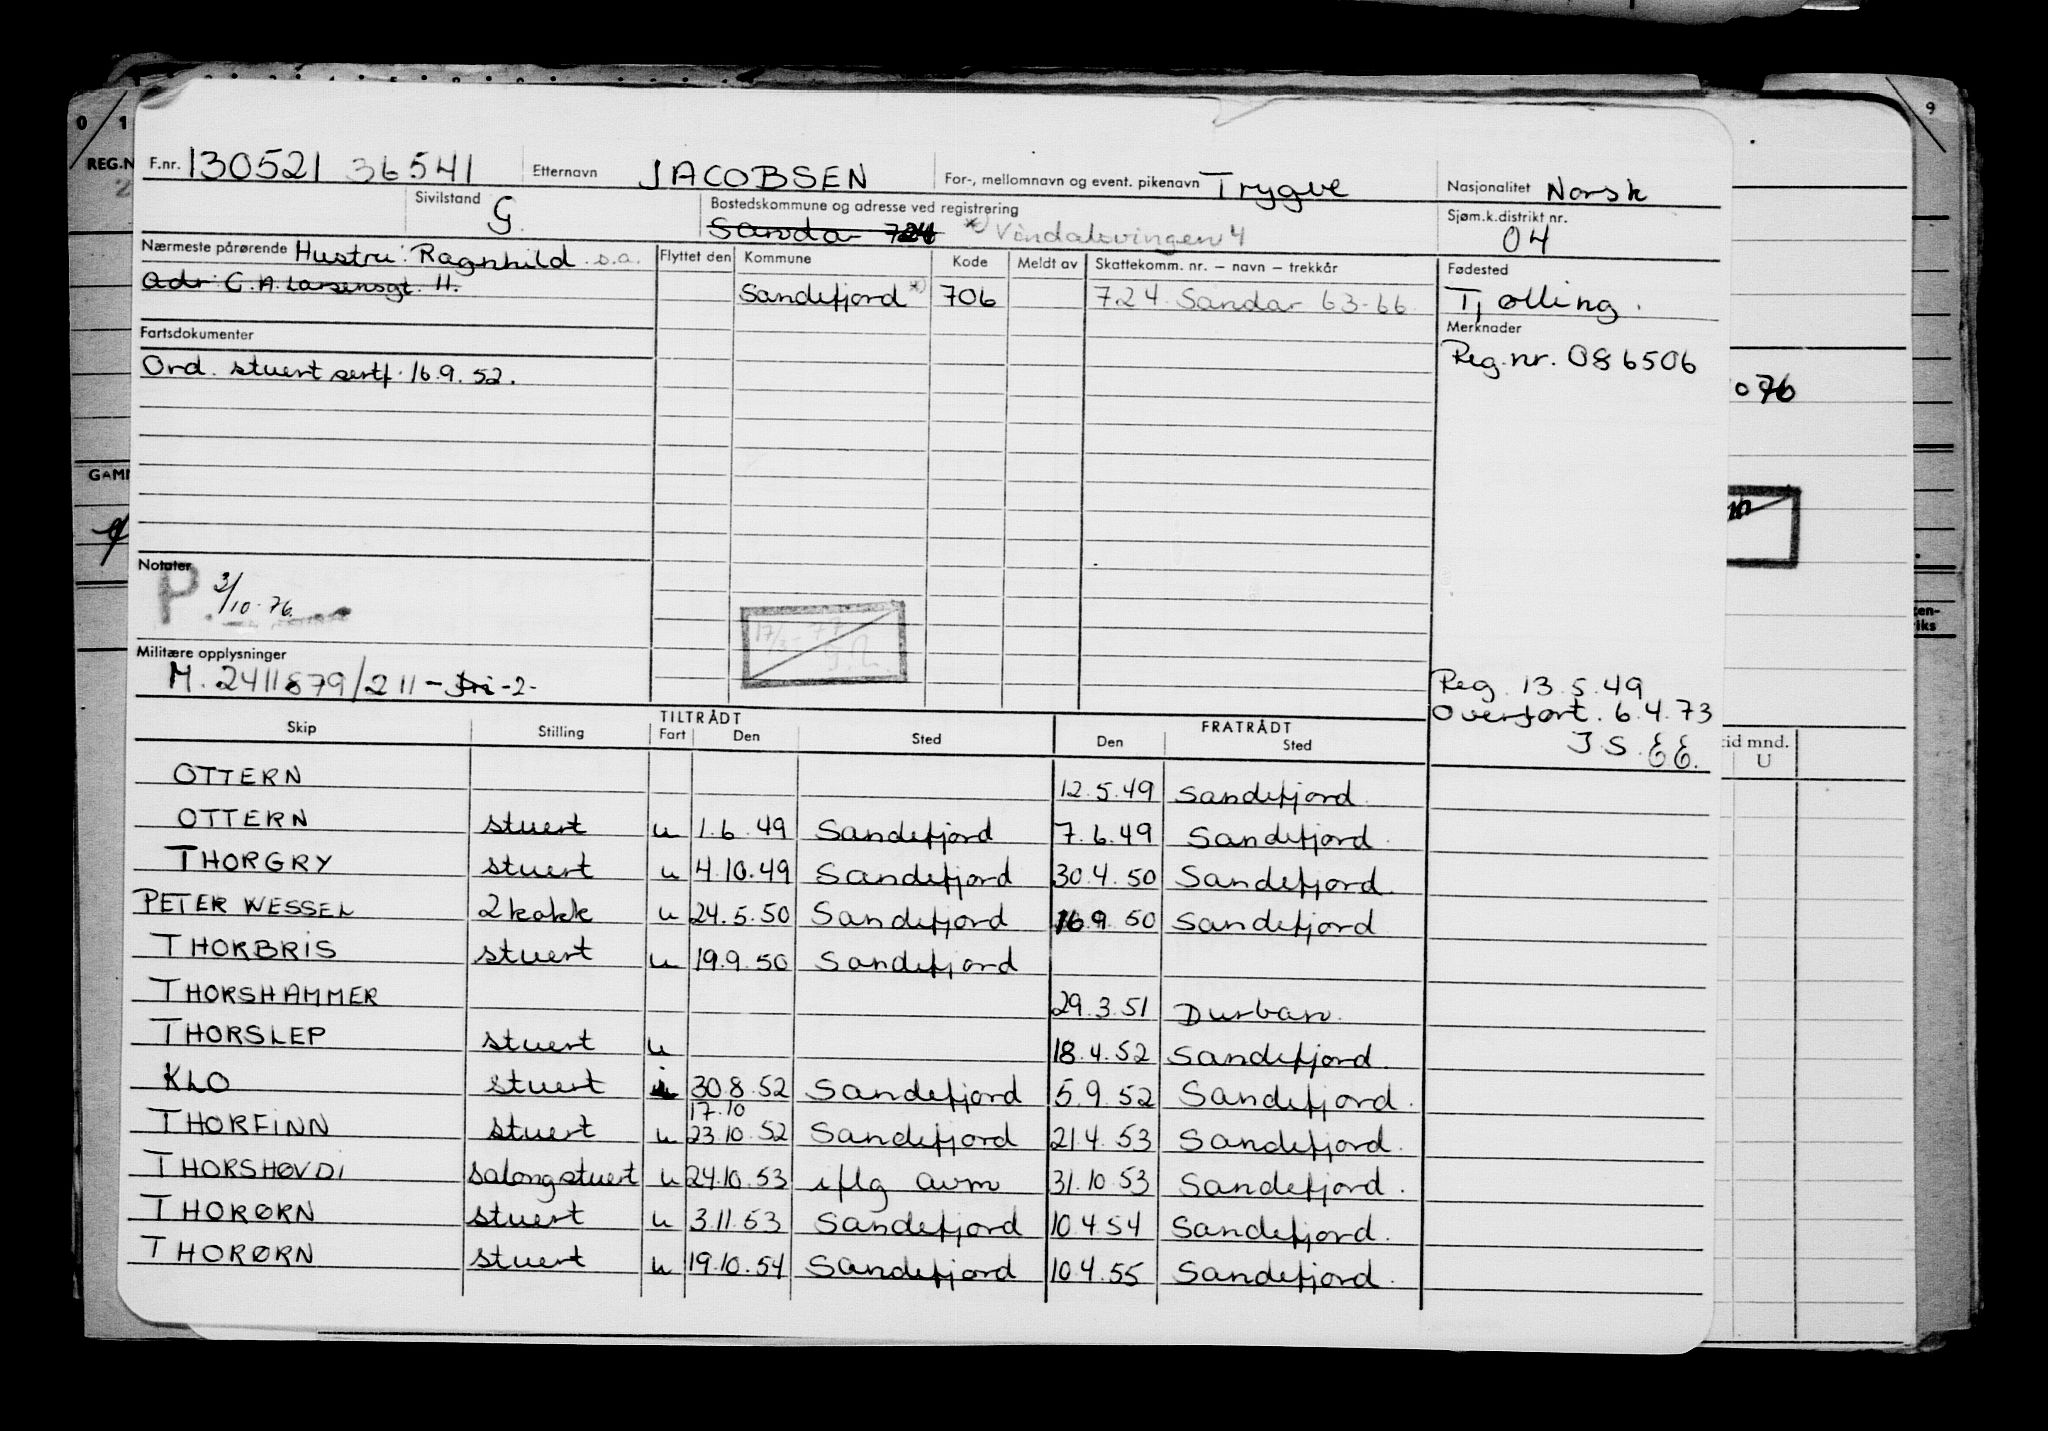 0 1 9
REG.N
F.nr. 130521 36541 Etternavn JACOBSEN For-, mellomnavn og event. pikenavn Trygve Nasjonalitet Norsk
Sivilstand G. Bostedskommune og adresse ved registrering Sandar 724 *) Vindalsvingen 4 Sjøm.k.distrikt nr. 04
Nærmeste pårørende Hustru: Ragnhild s.a. Flyttet den Kommune Kode Meldt av Skattekomm. nr. – navn – trekkår Fødested
Adr: C. A. Larsensgt. 11. Sandefjord *) 706 724 Sandar 63-66 Tjølling.
Fartsdokumenter Merknader
Ord. stuert sertf. 16.9.52. Reg.nr. 086506
076
GAM
Notater
P. 3/10-76.
17/ - 77
Militære opplysninger
M. 2411879/211 - -2-
Reg. 13.5.49
Overført. 6.4.73
J.S. EE.
Skip Stilling TILTRÅDT Fart Den Sted FRATRÅDT Den Sted
tid mnd.
U
OTTERN 12.5.49 Sandefjord
OTTERN stuert u 1.6.49 Sandefjord 7.6.49 Sandefjord.
THORGRY stuert u 4.10.49 Sandefjord 30.4.50 Sandefjord.
PETER WESSEL 2 kokk u 24.5.50 Sandefjord 16.9.50 Sandefjord
THORBRIS stuert u 19.9.50 Sandefjord
THORSHAMMER 29.3.51 Durban.
THORSLEP stuert u 18.4.52 Sandefjord.
KLO stuert 30.8.52 Sandefjord 5.9.52 Sandefjord.
17.10
THORFINN stuert u 23.10.52 Sandefjord 21.4.53 Sandefjord.
THORSHØVDI salongstuert u 24.10.53 iflg avm 31.10.53 Sandefjord.
THORØRN stuert u 3.11.53 Sandefjord 10.4.54 Sandefjord.
THORØRN stuert u 19.10.54 Sandefjord 10.4.55 Sandefjord.